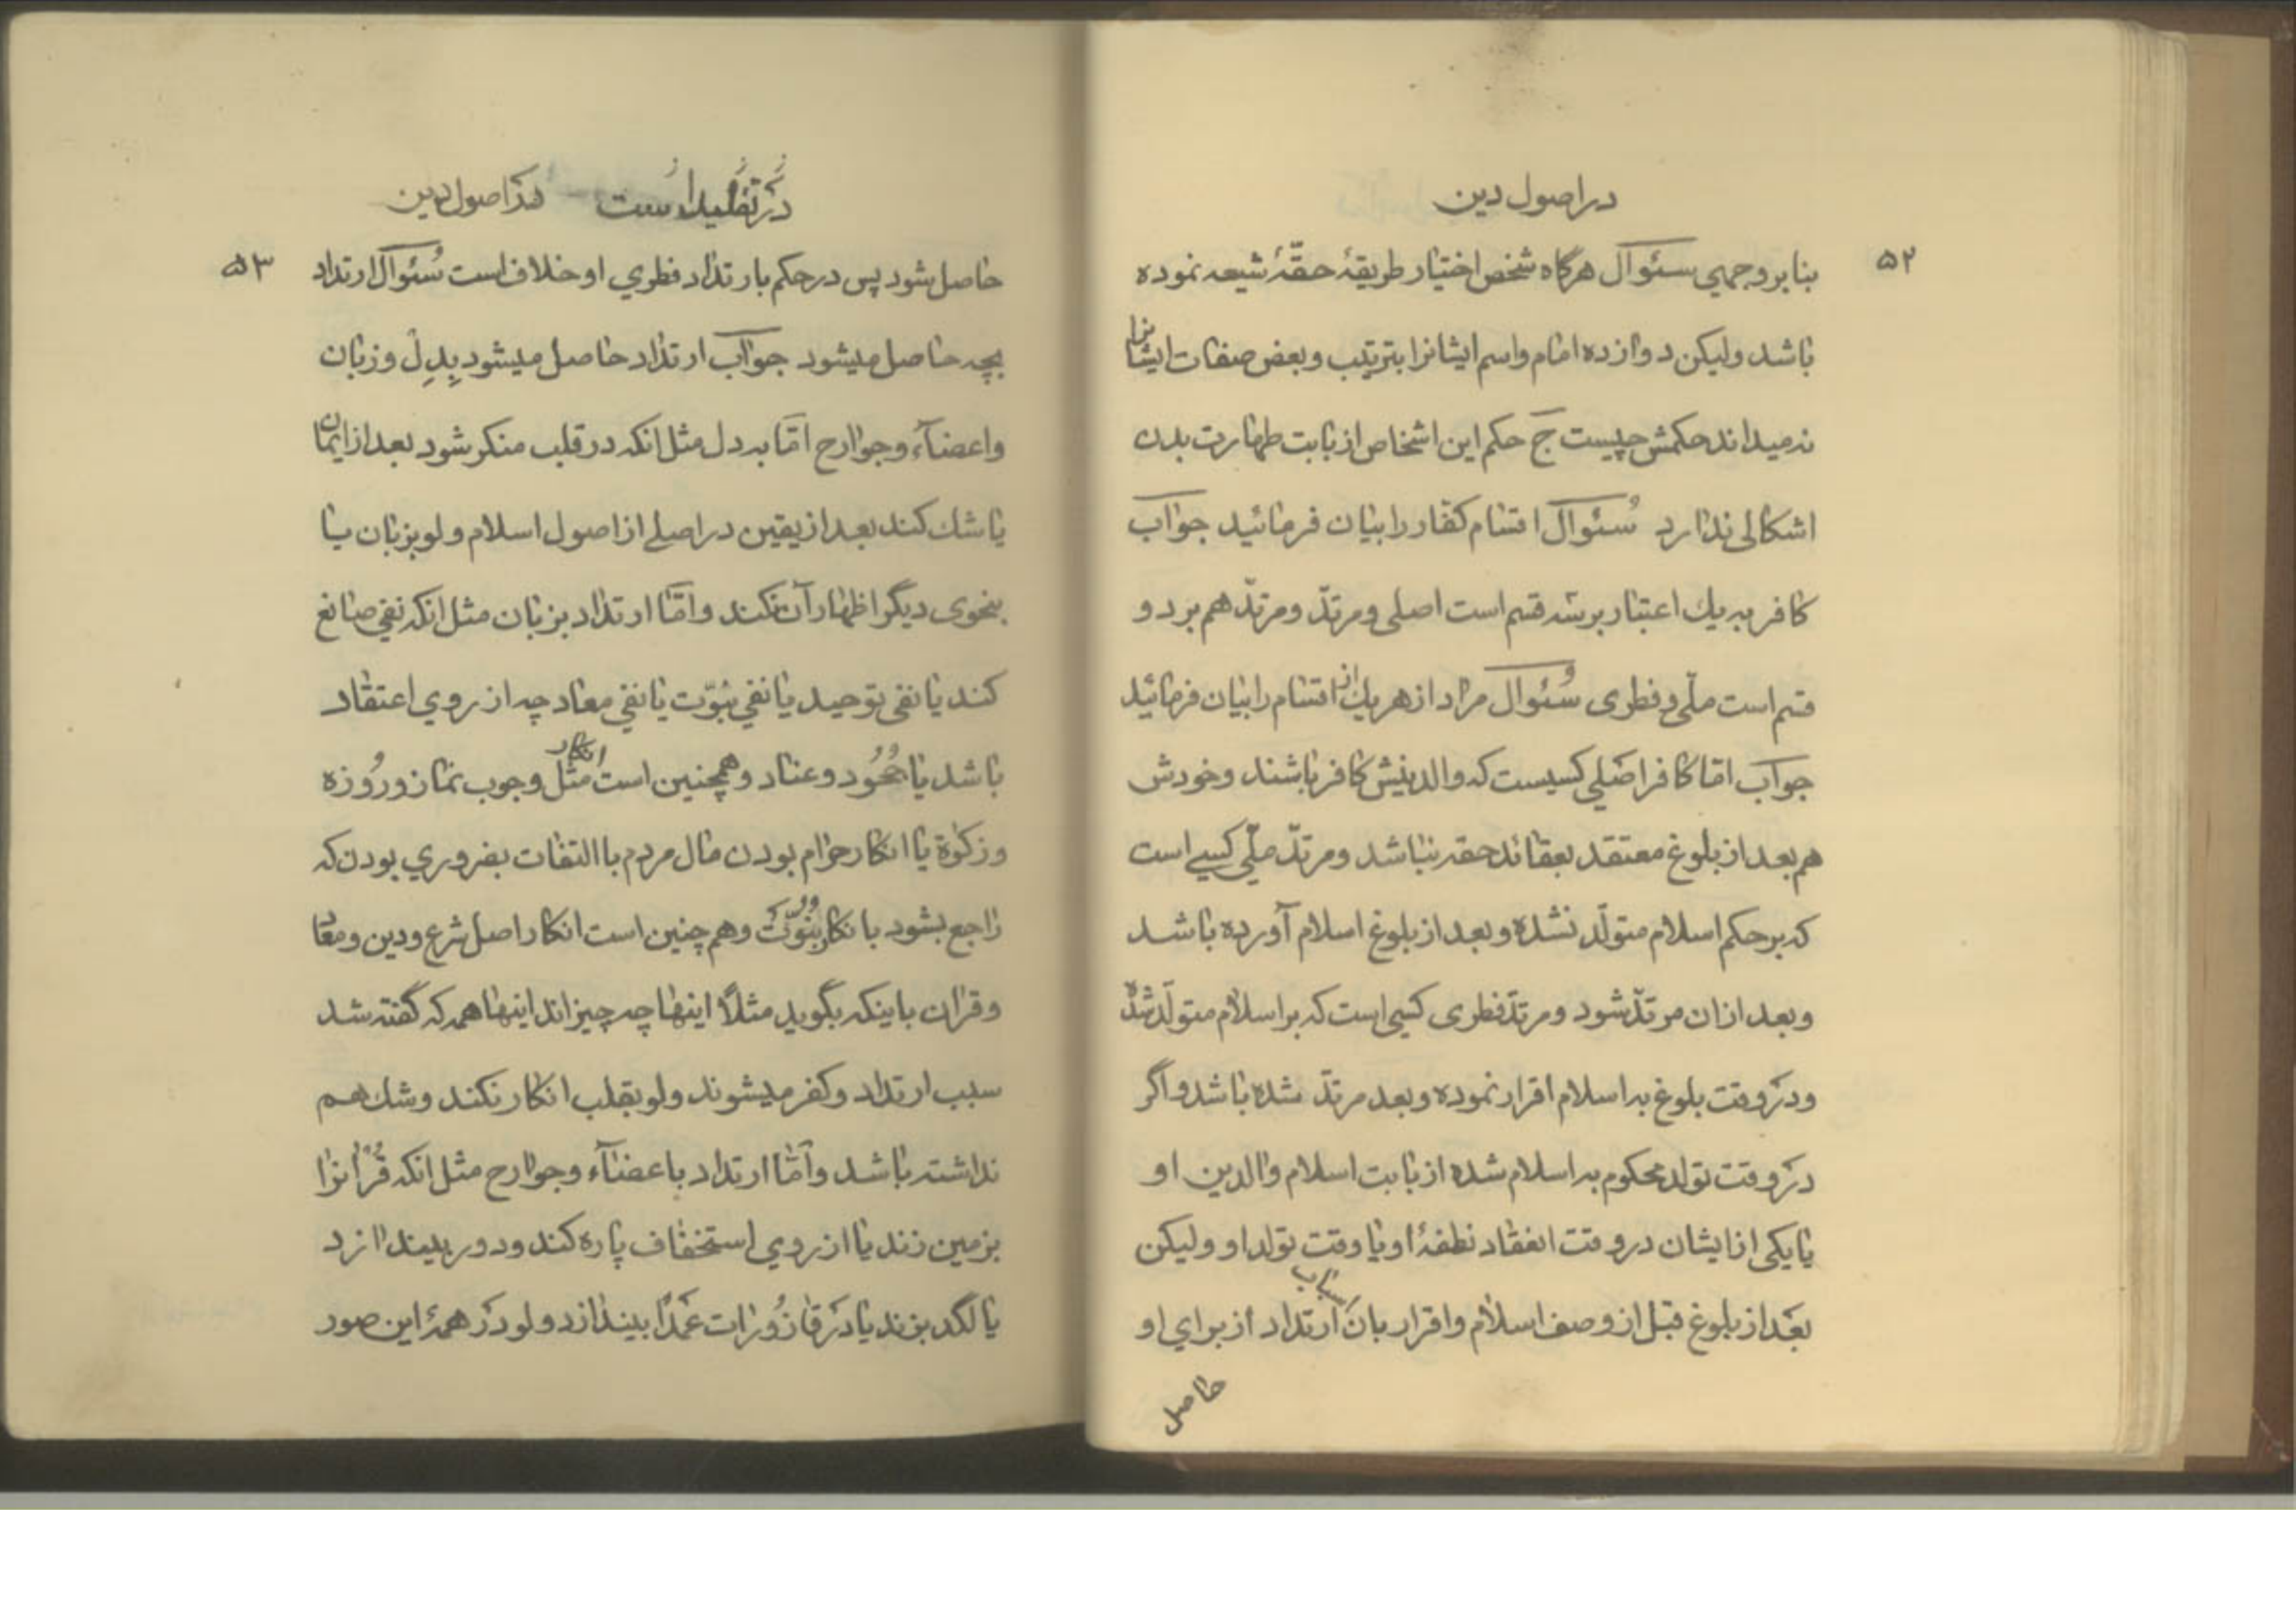 در اصول دین
۵۲
بنا بر وجهی سئوال هرگاه شخص اختیار طریقهٔ حقّهٔ شیعه نموده
باشد ولیکن دوازده امام واسم ایشانرا بترتیب وبعض صفات ایشانرا
نه میداند حکمش چیست ج حکم این اشخاص از بابت طهارت بدن
اشکالی ندارد سُئوال اقسام کفّار را بیان فرمائید جواب
کافر به یك اعتبار بر سه قسم است اصلی ومرتدّ ومرتدّ هم بر دو
قسم است ملّی و فطری سُئوال مراد از هر یك از اقسام را بیان فرمائید
جواب امّا کافر اصَلی کسیست که والدینش کافر باشند وخودش
هم بعد از بلوغ معتقد بعقائد حقه نباشد ومرتدّ ملّی کسے است
که بر حکم اسلام متولّد نشده وبعد از بلوغ اسلام آورده باشد
وبعد از ان مرتدّ شود ومرتدّ فطری کسی است که بر اسلام متولّد شده
ودر وقت بلوغ به اسلام اقرار نموده وبعد مرتدّ شده باشد واگر
در وقت تولد محکوم به اسلام شده از بابت اسلام والدین او
یا یکی از ایشان در وقت انعقاد نطفهٔ او یا وقت تولد او ولیکن
بعَد از بلوغ قبل از وصف اسلام واقرار بان ارتداد از برای او
حاصل
در تقلید است در اصول دین
۵۳
حاصل شود پس در حکم بارتداد فطري او خلاف است سُئوال ارتداد
بچه حاصل میشود جواب ارتداد حاصل میشود بِدِل وزبان
واعضآء وجوارح امّا به دل مثل انکه در قلب منکر شود بعد از ایمان
یا شك کند بعد از یقین در اصلے از اصول اسلام ولو بزبان یا
بنحوی دیگر اظهار آن نکند وامّا ارتداد بزبان مثل انکه نفي صانع
کند یا نفي توحید یا نفي نبوّت یا نفي معاد چه از روي اعتقاد
باشد یا جُحُود وعناد وهمچنین است مثل انکار وجوب نماز ورُوزه
وزکوٰة یا انکار حرام بودن مال مردم با التفات بضروري بودن که
راجع بشود بانکار نبوّت وهم چنین است انکار اصل شرع ودین ومعاد
وقران باینکه بگوید مثلاً اینها چه چیزاند اینها همه که گفته شد
سبب ارتداد وکفر میشوند ولو بقلب انکار نکند وشك هم
نداشته باشد وآمّا ارتداد باعضآء وجوارح مثل انکه قُرْانرا
بزمین زند یا از روي استخفاف پاره کند ودور بیندازد
یا لگد بزند یا در قاذُورات عمَدًا بیندازد ولو در همهٔ این صور